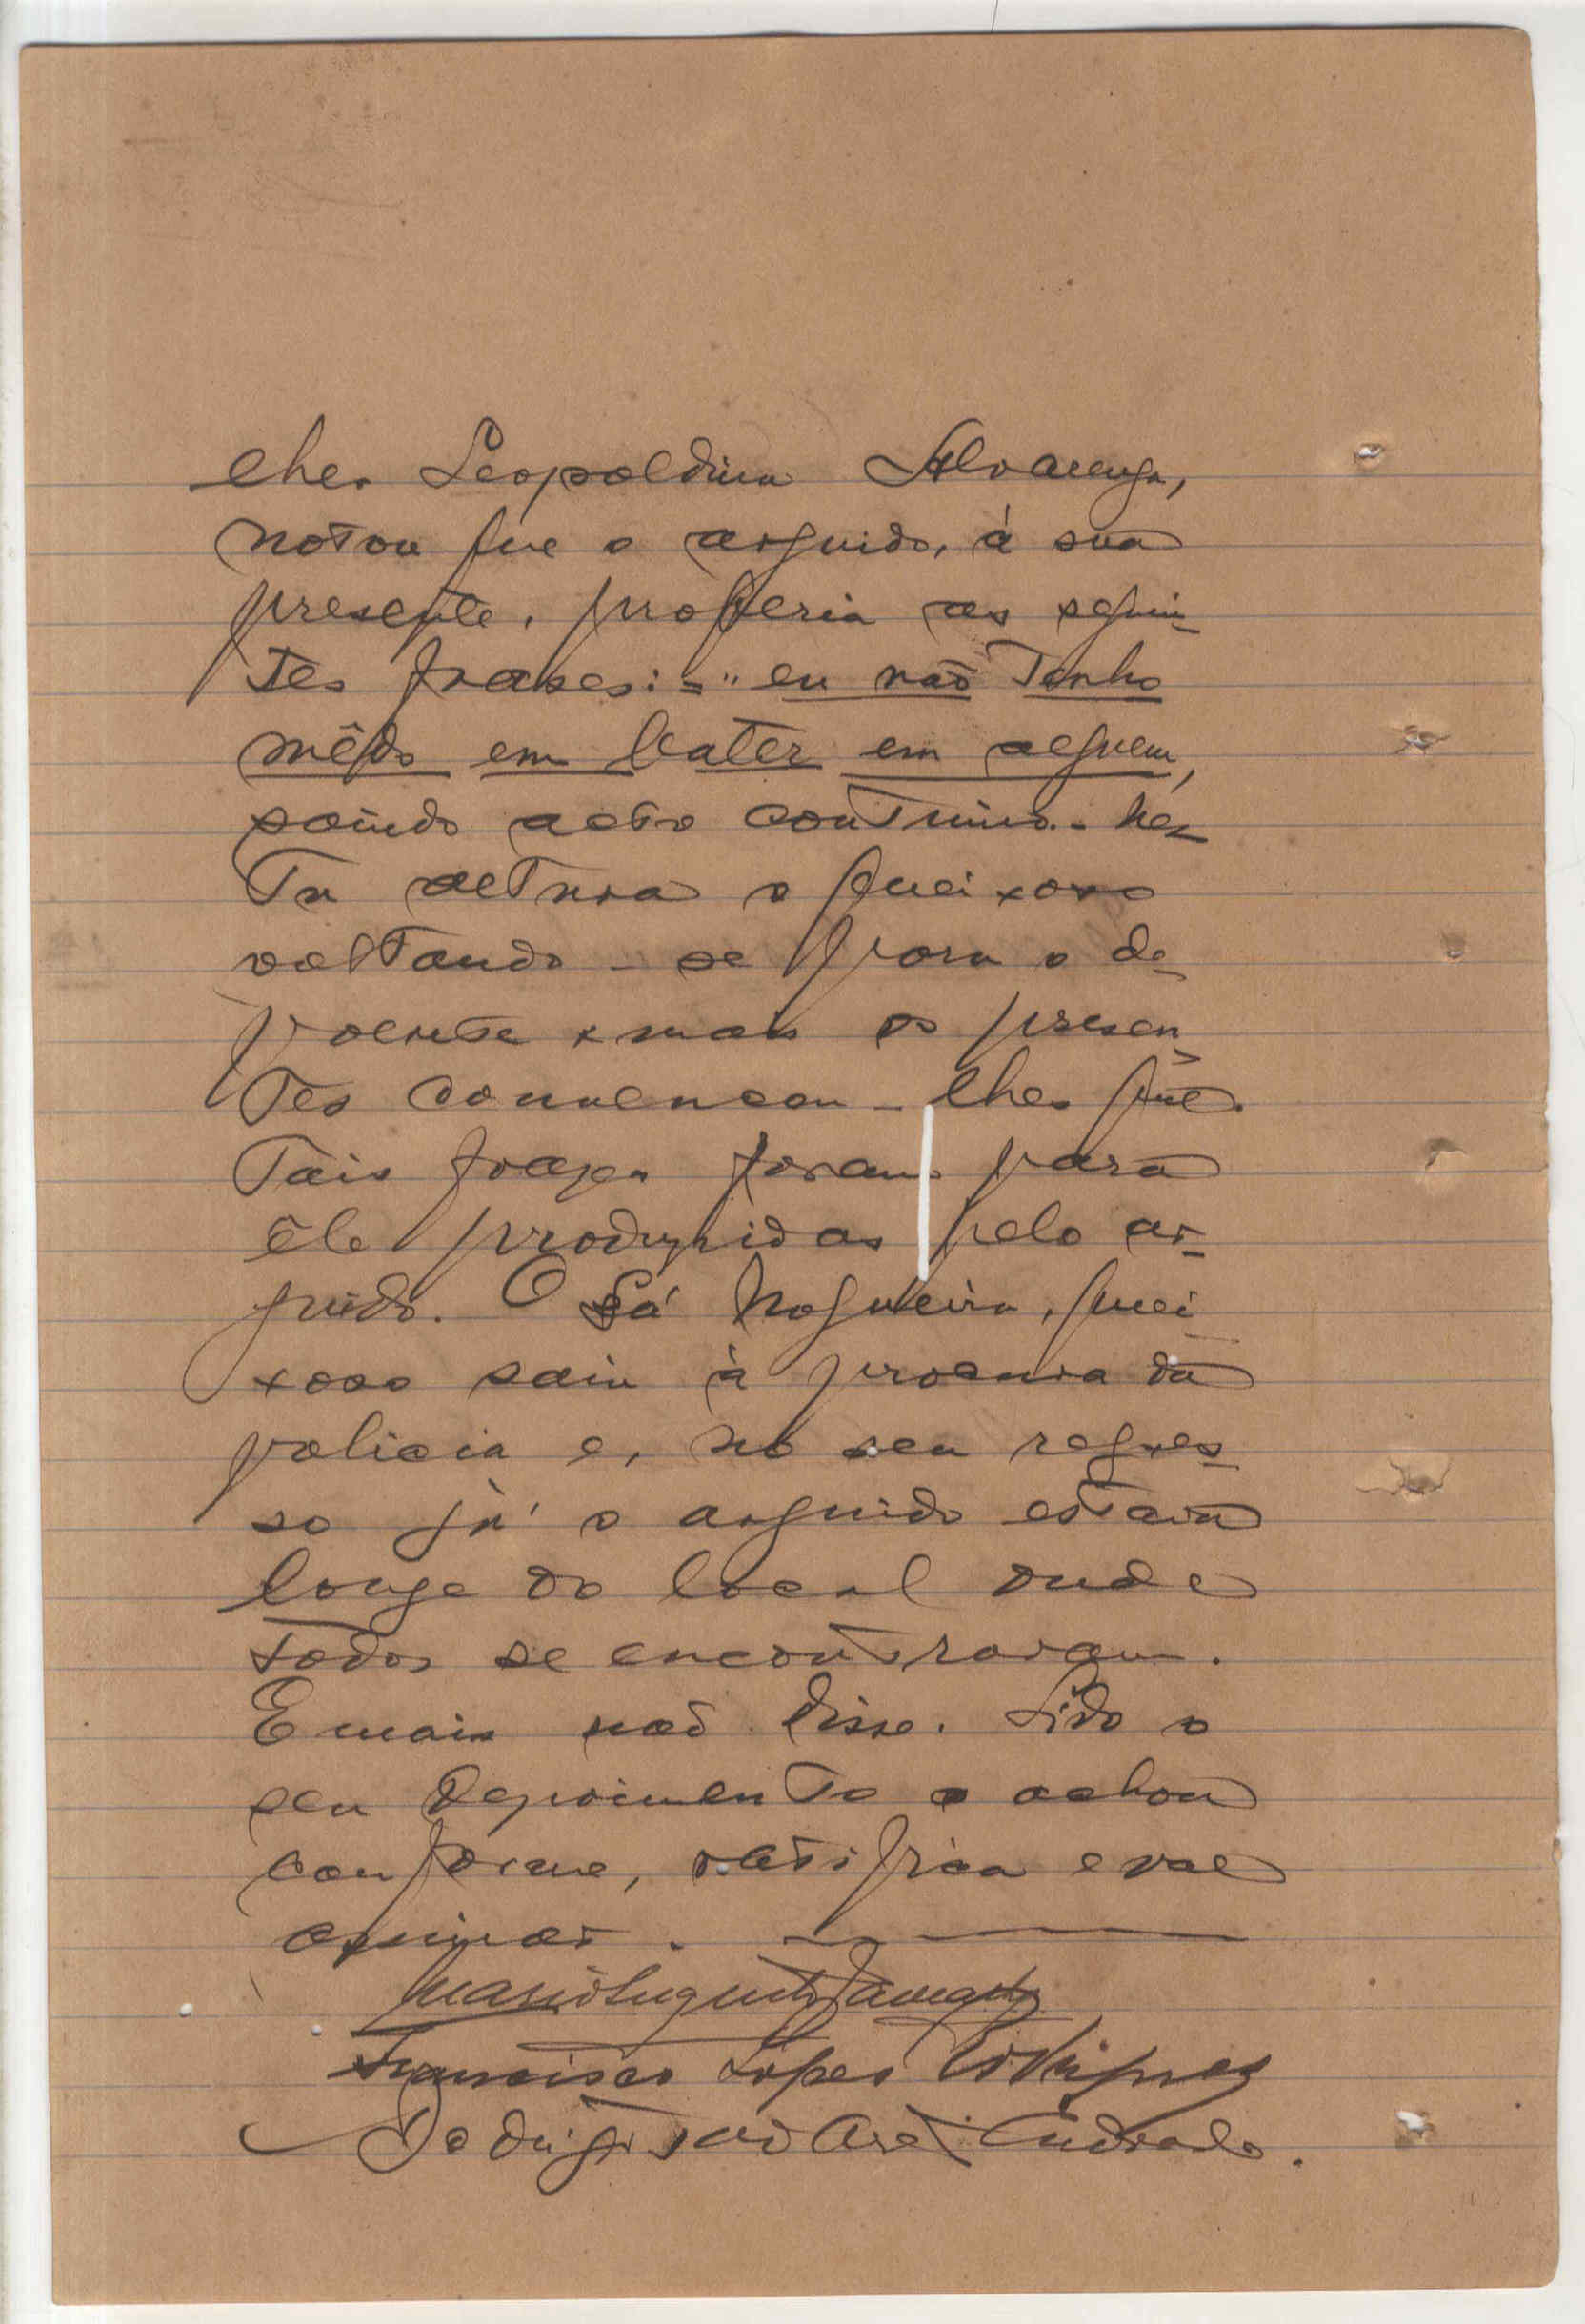 lher Leopoldina Alvarenga,
notou que o arguido, á sua
presente, proferia as seguin-
tes frases:="eu não Tenho
mêdo em bater em alguem,
saindo acto continuo. Nes-
ta altura o queixoso
voltando-se para o de-
poente e mais os presen-
tes convenceu-lhes que
tais frases foram para
êle produzidas pelo ar-
guido. O Sá Nogueira, quei-
xoso saiu à procura da
policia e, no seu regres-
so já o arguido estava
longe do local onde
todos se encontravam.
E mais não disse. Lido o
seu depoimento o achou
conforme, ratifica e vae
assinar.
Francisco Lopes Rodrigues
Rodrigo Andrade.